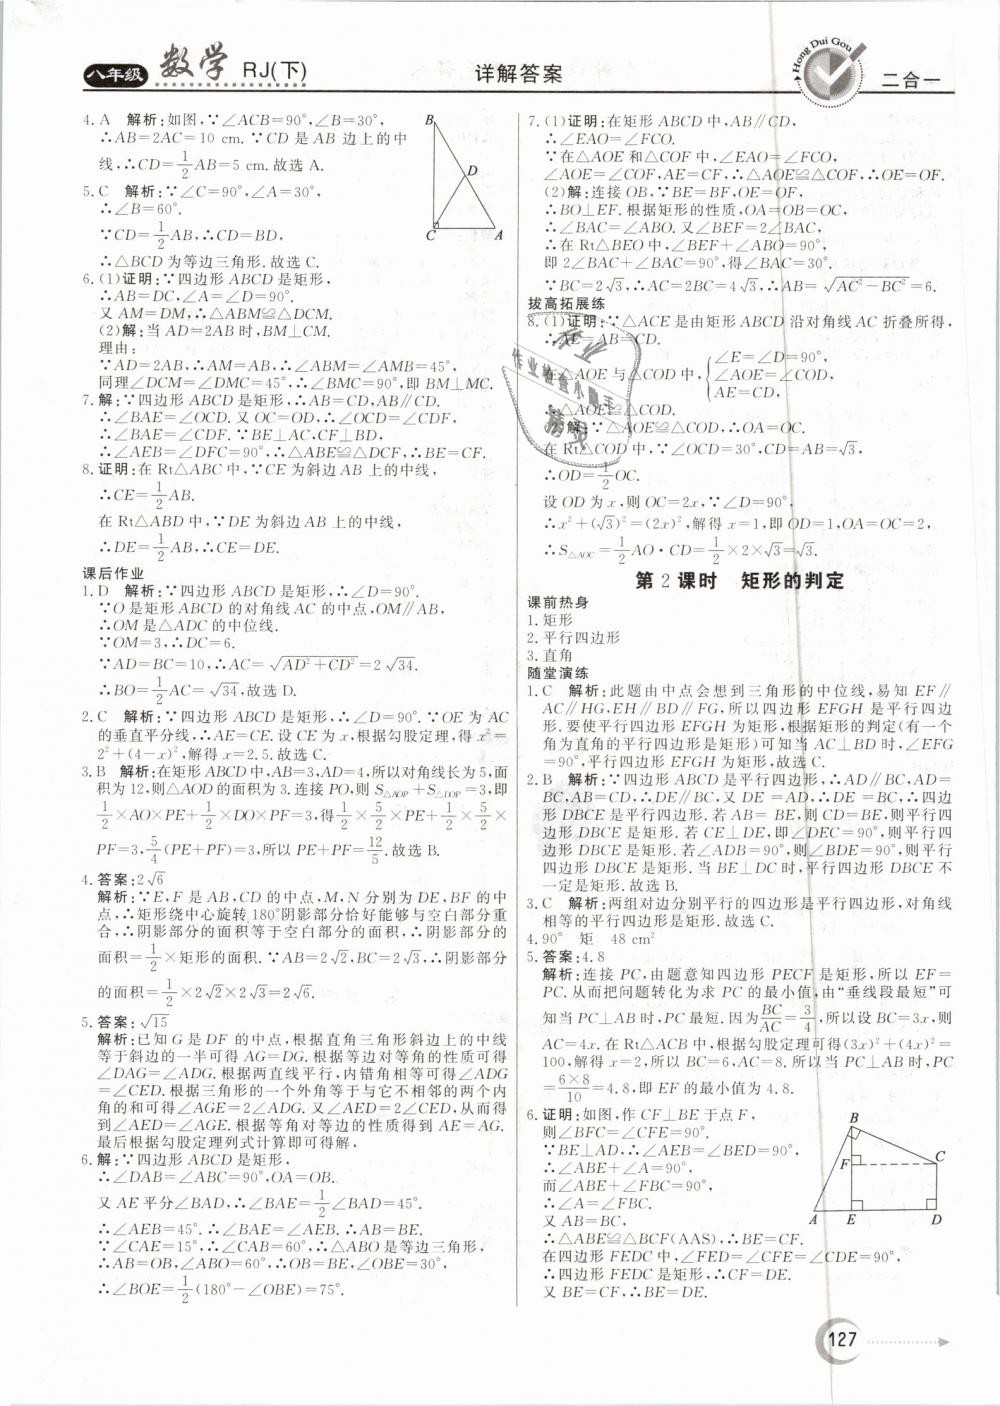 八年级 数学 RJ(下)
详解答案
Hong Dui Gou
二合一
4.A 解析:如图,∵∠ACB=90°,∠B=30°,
∴AB=2AC=10 cm.∵CD是AB边上的中
线,∴CD=1/2AB=5 cm.故选A.
5.C 解析:∵∠C=90°,∠A=30°,
∴∠B=60°.
∵CD=1/2AB,∴CD=BD,
∴△BCD为等边三角形.故选C.
6.(1)证明:∵四边形ABCD是矩形,
∴AB=DC,∠A=∠D=90°.
又AM=DM,∴△ABM≌△DCM.
(2)解:当AD=2AB时,BM⊥CM.
理由:
∵AD=2AB,∴AM=AB,∴∠ABM=∠AMB=45°,
同理∠DCM=∠DMC=45°,∴∠BMC=90°,即BM⊥MC.
7.解:∵四边形ABCD是矩形,∴AB=CD,AB∥CD.
∴∠BAE=∠OCD.又OC=OD,∴∠OCD=∠CDF,
∴∠BAE=∠CDF.∵BE⊥AC,CF⊥BD,
∴∠AEB=∠DFC=90°,∴△ABE≌△DCF,∴BE=CF.
8.证明:在Rt△ABC中,∵CE为斜边AB上的中线,
∴CE=1/2AB.
在Rt△ABD中,∵DE为斜边AB上的中线,
∴DE=1/2AB,∴CE=DE.
课后作业
1.D 解析:∵四边形ABCD是矩形,∴∠D=90°.
∵O是矩形ABCD的对角线AC的中点,OM∥AB,
∴OM是△ADC的中位线.
∵OM=3,∴DC=6.
∵AD=BC=10,∴AC=√(AD²+CD²)=2√34.
∴BO=1/2AC=√34,故选D.
2.C 解析:∵四边形ABCD是矩形,∴∠D=90°.∵OE为AC
的垂直平分线,∴AE=CE.设CE为x,根据勾股定理,得x²=
2²+(4-x)²,解得x=2.5.故选C.
3.B 解析:在矩形ABCD中,AB=3,AD=4,所以对角线长为5,面
积为12,则△AOD的面积为3.连接PO,则S△AOP+S△DOP=3,即
1/2×AO×PE+1/2×DO×PF=3,得1/2×5/2×PE+1/2×5/2×
PF=3,5/4(PE+PF)=3,所以PE+PF=12/5.故选B.
4.答案:2√6
解析:∵E,F是AB,CD的中点,M,N分别为DE,BF的中
点,∴矩形绕中心旋转180°阴影部分恰好能够与空白部分重
合,∴阴影部分的面积等于空白部分的面积,∴阴影部分的
面积=1/2×矩形的面积.∵AB=2√2,BC=2√3,∴阴影部分
的面积=1/2×2√2×2√3=2√6.
5.答案:√15
解析:已知G是DF的中点,根据直角三角形斜边上的中线
等于斜边的一半可得AG=DG.根据等边对等角的性质可得
∠DAG=∠ADG.根据两直线平行,内错角相等可得∠ADG
=∠CED.根据三角形的一个外角等于与它不相邻的两个内
角的和可得∠AGE=2∠ADG.又∠AED=2∠CED,从而得
到∠AED=∠AGE.根据等角对等边的性质得到AE=AG.
最后根据勾股定理列式计算即可得解,
6.解:∵四边形ABCD是矩形,
∴∠DAB=∠ABC=90°,OA=OB.
又AE平分∠BAD,∴∠BAE=1/2∠BAD=45°.
∴∠AEB=45°.∴∠BAE=∠AEB.∴AB=BE.
∵∠CAE=15°,∴∠CAB=60°,∴△ABO是等边三角形,
∴AB=OB,∠ABO=60°.∴OB=BE,∠OBE=30°,
∴∠BOE=1/2(180°-∠OBE)=75°.
B
D
C
A
7.(1)证明:在矩形ABCD中,AB∥CD,
∴∠EAO=∠FCO.
∵在△AOE和△COF中,∠EAO=∠FCO,
∠AOE=∠COF,AE=CF,∴△AOE≌△COF,∴OE=OF.
(2)解:连接OB,∵BE=BF,OE=OF,
∴BO⊥EF.根据矩形的性质,OA=OB=OC,
∴∠BAC=∠ABO.又∠BEF=2∠BAC,
∴在Rt△BEO中,∠BEF+∠ABO=90°,
即2∠BAC+∠BAC=90°,得∠BAC=30°.
∵BC=2√3,∴AC=2BC=4√3,∴AB=√(AC²-BC²)=6.
拔高拓展练
8.(1)证明:∵△ACE是由矩形ABCD沿对角线AC折叠所得,
∴AE=AB=CD.
在△AOE与△COD中,{∠E=∠D=90°,
∠AOE=∠COD,
AE=CD,
∴△AOE≌△COD.
(2)解:∵△AOE≌△COD,∴OA=OC.
在Rt△COD中,∵∠OCD=30°.CD=AB=√3,
∴OD=1/2OC.
设OD为x,则OC=2x,∵∠D=90°,
∴x²+(√3)²=(2x)²,解得x=1,即OD=1,OA=OC=2,
∴S△AOC=1/2AO·CD=1/2×2×√3=√3.
第2课时 矩形的判定
课前热身
1.矩形
2.平行四边形
3.直角
随堂演练
1.C 解析:此题由中点会想到三角形的中位线,易知EF∥
AC∥HG,EH∥BD∥FG,所以四边形EFGH是平行四边
形.要使平行四边形EFGH为矩形,根据矩形的判定(有一个
角为直角的平行四边形是矩形)可知当AC⊥BD时,∠EFG
=90°,平行四边形EFGH为矩形,故选C.
2.B 解析:∵四边形ABCD是平行四边形,∴AD∥BC,AD=
BC,AB=CD,∴DE∥BC,又DE=AD,∴DE=BC,∴四边
形DBCE是平行四边形.若AB=BE,则CD=BE,则平行四
边形DBCE是矩形.若CE⊥DE,即∠DEC=90°,则平行四
边形DBCE是矩形.若∠ADB=90°,则∠BDE=90°,则平行
四边形DBCE是矩形.当BE⊥DC时,平行四边形DBCE不
一定是矩形.故选B.
3.C 解析:两组对边分别平行的四边形是平行四边形,对角线
相等的平行四边形是矩形.故选C.
4.90° 矩 48 cm²
5.答案:4.8
解析:连接PC,由题意知四边形PECF是矩形,所以EF=
PC.从而把问题转化为求PC的最小值,由“垂线段最短”可
知当PC⊥AB时,PC最短.因为BC/AC=3/4,所以设BC=3x,则
AC=4x.在Rt△ACB中,根据勾股定理可得(3x)²+(4x)²=
100,解得x=2,所以BC=6,AC=8.所以当PC⊥AB时,PC
=6×8/10=4.8,即EF的最小值为4.8.
6.证明:如图,作CF⊥BE于点F,
则∠BFC=∠CFE=90°.
∵BE⊥AD,∴∠AEB=∠BED=90°,
∴∠ABE+∠A=90°,
而∠ABE+∠FBC=90°,
∴∠A=∠FBC.
又AB=BC,
∴△ABE≌△BCF(AAS),∴BE=CF.
在四边形FEDC中,∠FED=∠CFE=∠CDE=90°,
∴四边形FEDC是矩形,∴CF=DE.
又BE=CF,∴BE=DE.
B
F
C
A
E
D
作业
作业检查小助手
精灵
127